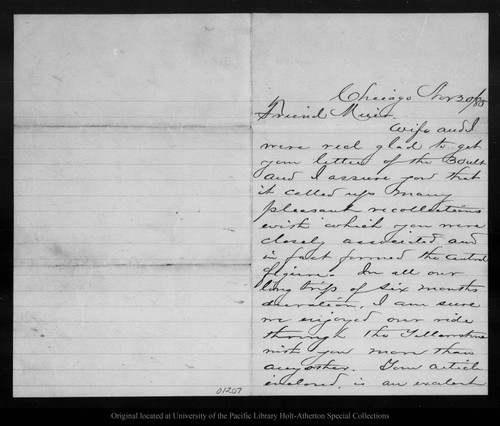 Chicago Nov 30/85
Friend Muir.
Wife and I
were real glad to get
your letter of the 30 ult
and I assure you that
it called up many
pleasant recollections
with which you were
closely associated and
in fact formed the central
figure. In all our
long trip of six months
duration, I am sure
we enjoyed our ride
through the Yellowstone
with you more than
any other. Your article
enclosed, is an excelent
01207
Original located at University of the Pacific Library Holt-Atherton Special Collections